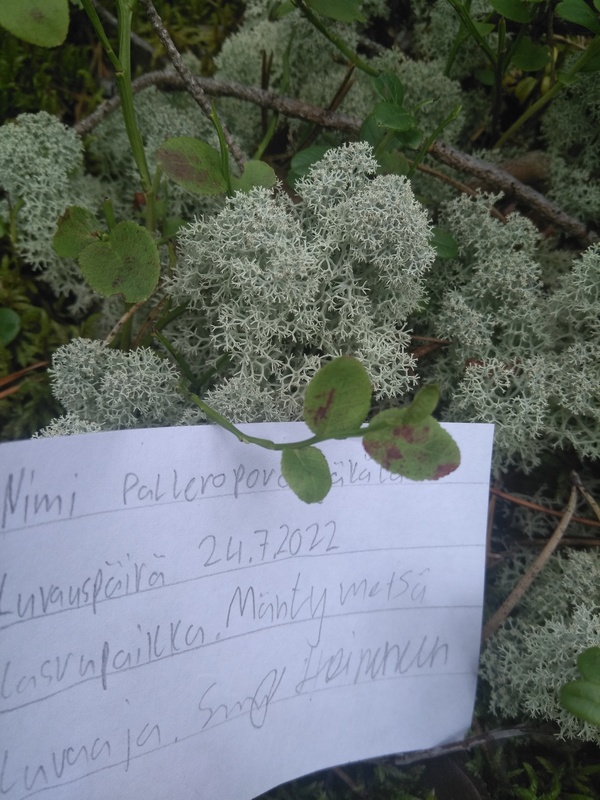 Nimi Palleroporonjäkälä
Luvauspäivä 24.7.2022
Kasvupaikka. Mäntymetsä
Luvaaja. Heinonen